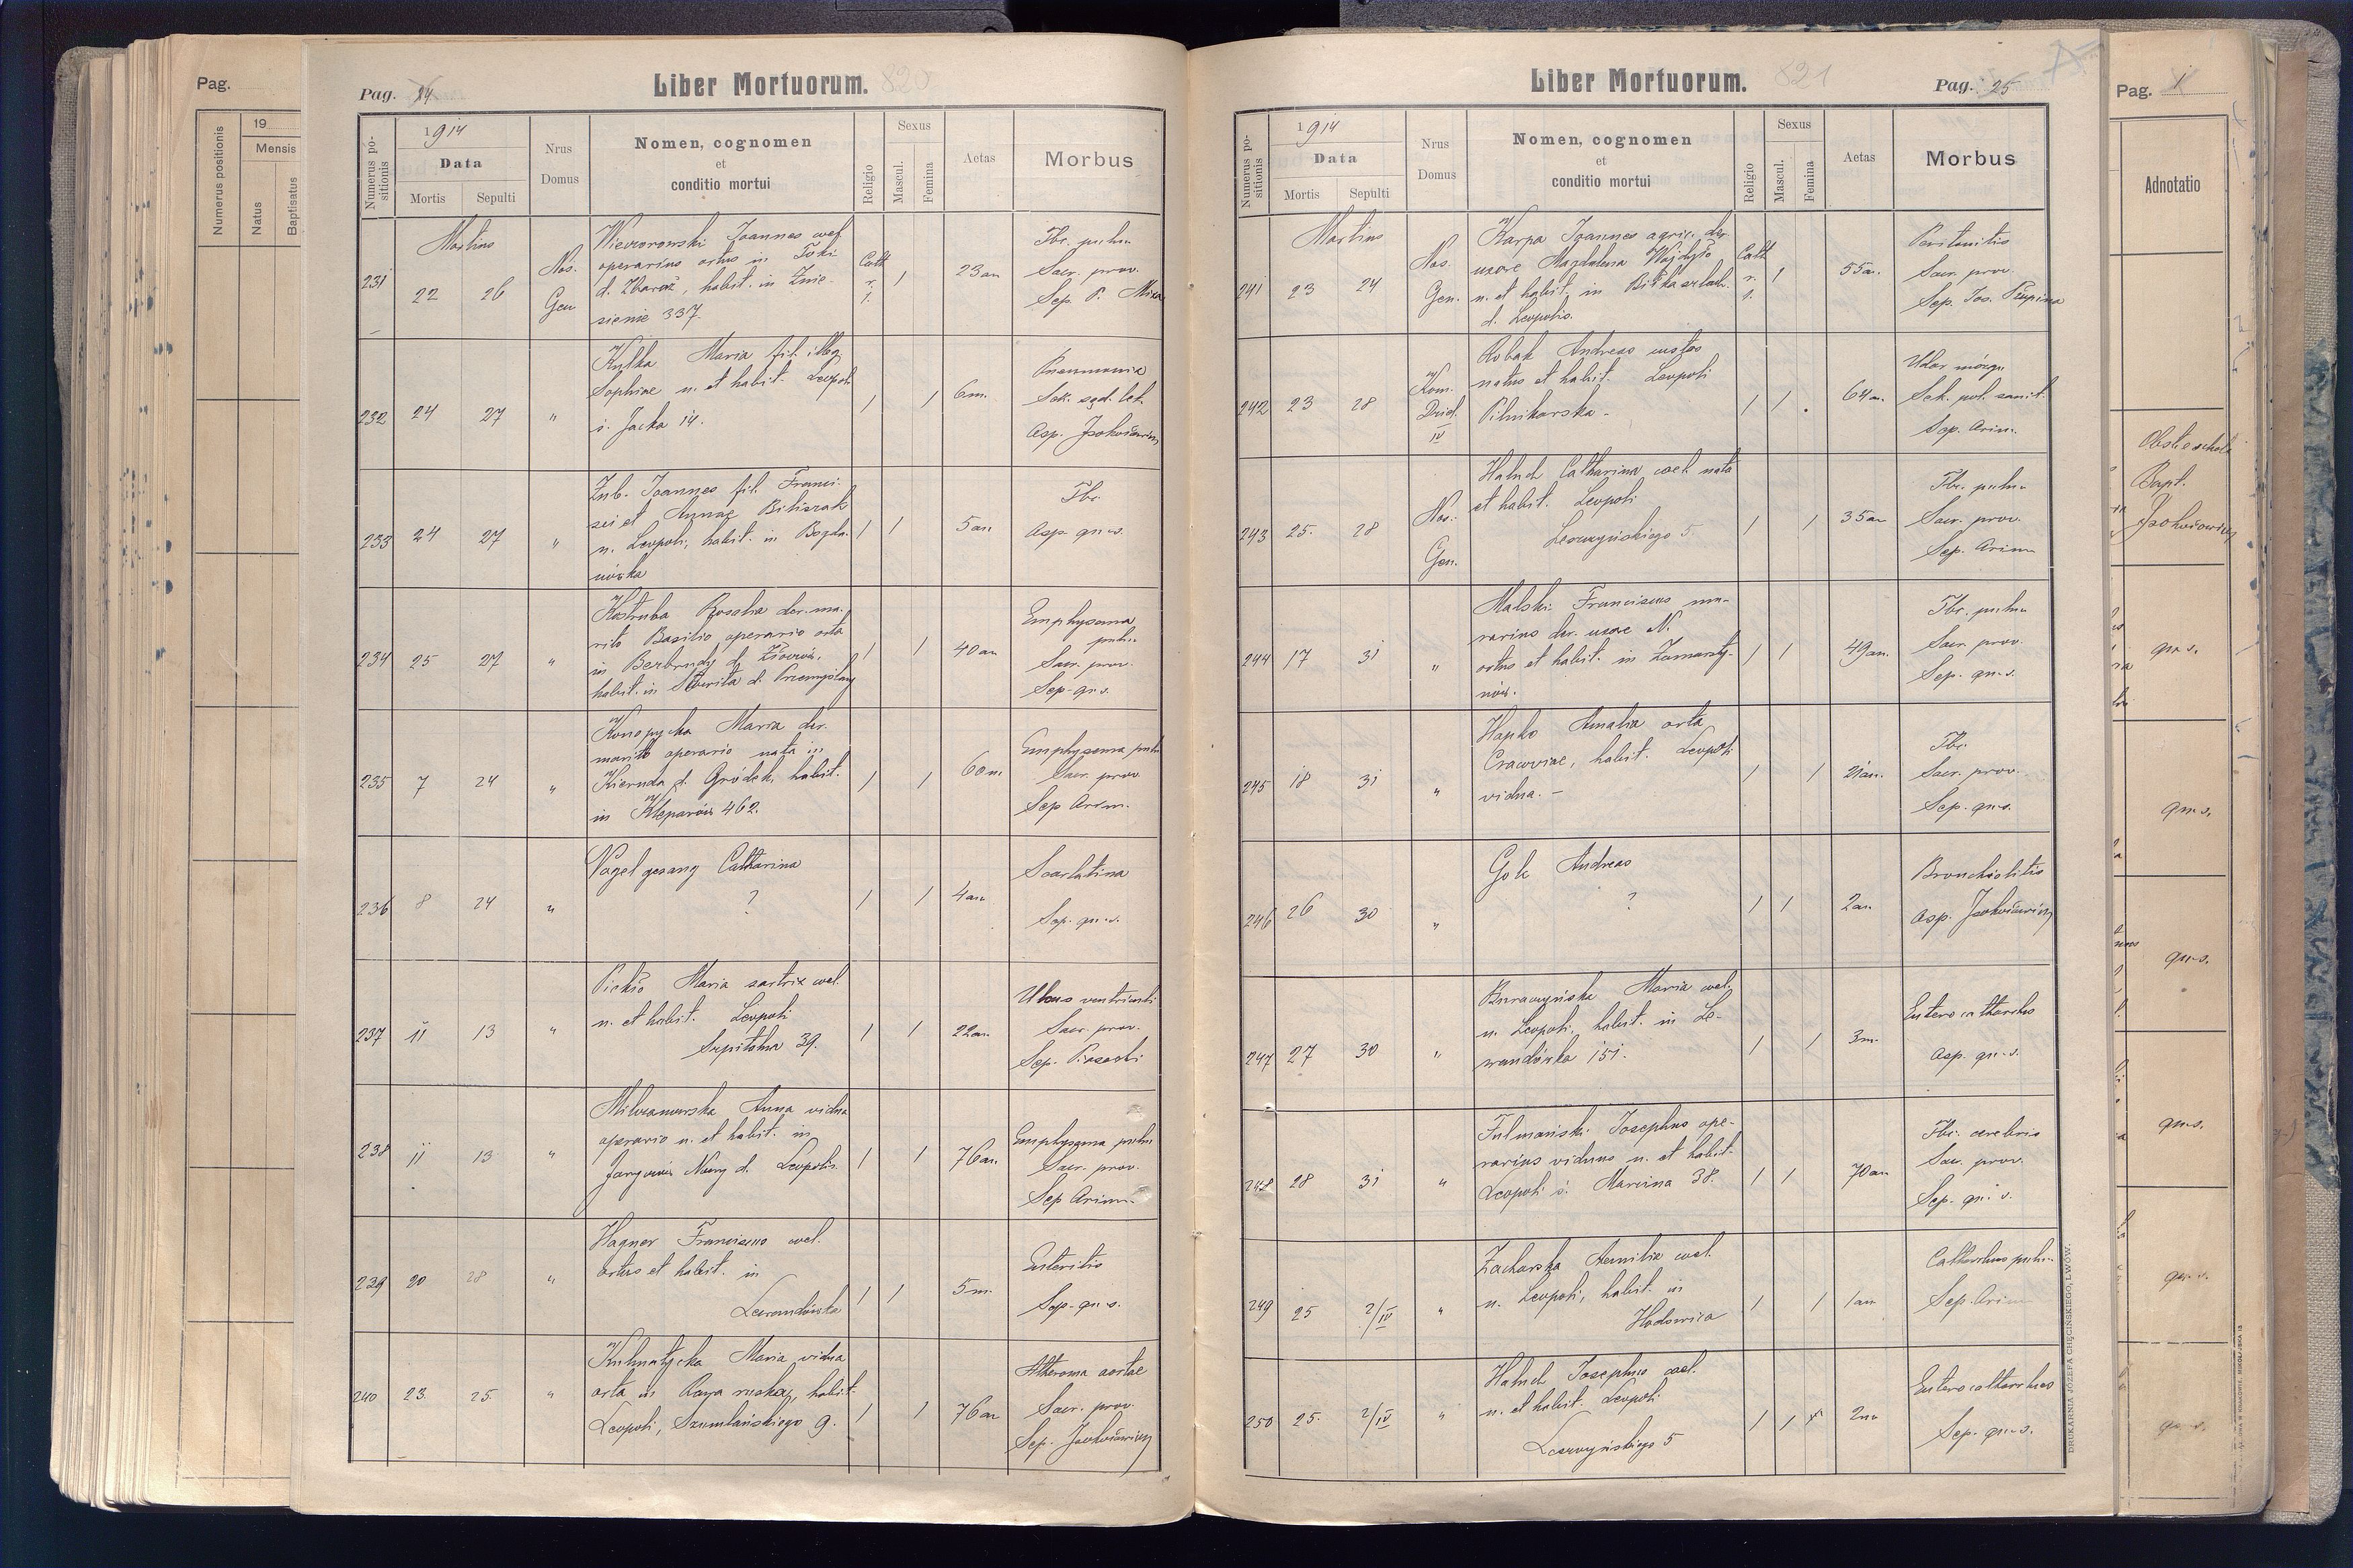 Pag.
Numerus positionis
19
Mensis
Natus
Baptisatus
Pag. 24
Liber Mortuorum. 820
Numerus positionis
1914
Data
Mortis
Sepulti
Nrus Domus
Nomen, cognomen
et
conditio mortui
Religio
Sexus
Mascul.
Femina
Aetas
Morbus
Martius
231
22
26
Nos.
Gen
Wieczorowski Joannes coel.
operarius ortus in Toki
d. Zbaraż, habit. in Znie-
sienie 337.
Cath
r.
l.
1
23 an
Tbc. pulm.
Sacr. prov.
Sep. P. Mixa
232
24
27
"
Kulka Maria fil. illeg.
Sophiae n. et habit. Leopoli
ś. Jacka 14.
1
1
6 m.
Pneumonia
Sek. sąd. lek.
Asp. Isokowicz
233
24
27
"
Zub. Joannes fil. Franci-
sci et Annae
n. Leopoli, habit. in Bogda-
nówka
1
1
5 an
Tbc.
Asp. qu. s.
234
25
27
"
Kostruba Rosalia der. ma-
rito Basilio, operario orta
in d. Złoczów,
habit. in d. Przemyślany
1
1
40 an
Emphysema
pulm.
Sacr. prov.
Sep. qu. s.
235
7
24
"
Konopycka Maria der.
marito operario nata in
d. Gródek, habit.
in Kleparów 462.
1
1
60 an
Emphysema pulm
Sacr. prov.
Sep Arim.
236
8
24
"
Vogelgesang Catharina
?
1
1
4 an
Scarlatina
Sep. qu. s.
237
11
13
"
Maria sartrix coel.
n. et habit. Leopoli
Szpitalna 39.
1
1
22 an.
Ulcus ventriculi
Sacr. prov.
Sep. Piasecki
238
11
13
"
Milczanowska Anna vidua
operario n. et habit. in
Jaryczów Nowy d. Leopolis.
1
1
76 an.
Emphysema pulm
Sacr. prov.
Sep Arim.
239
20
28
"
Hagner Franciscus coel.
ortus et habit. in
Lewandówka
1
1
5 m.
Enteritis
Sep. qu. s.
240
23.
25
"
Kulmatycka Maria vidua
orta in Rawa ruska, habit.
Leopoli, Szumlańskiego 9.
1
1
76 an
Atheroma aortae
Sacr. prov.
Sep. Isokowicz
Liber Mortuorum. 821
Pag. 25
Numerus positionis
1914
Data
Mortis
Sepulti
Nrus Domus
Nomen, cognomen
et
conditio mortui
Religio
Sexus
Mascul.
Femina
Aetas
Morbus
Martius
241
23
24
Nos.
Gen.
Karpa Joannes agric. der.
uxore Magdalena Wojdyło
n. et habit. in Biłka szlach.
d. Leopolis.
Cath
r.
l.
1
55 an.
Peritonitis
Sacr. prov.
Sep. Jos.
242
23
28
Kom.
Dziel.
IV
Robak Andreas custos
natus et habit. Leopoli
Pilnikarska -
1
1
64 an.
Udar mózgu
Sek. pol. sanit.
Sep. Arim.
243
25.
28
Nos.
Gen.
Haluch Catharina coel. nata
et habit. Leopoli
Leszczyńskiego 5.
1
1
35 an
Tbc. pulm.
Sacr. prov.
Sep. Arim
244
17
31
"
Malski Franciscus mu-
rarius der. uxore N.
ortus et habit. in Zamarsty-
nów.
1
1
49 an.
Tbc. pulm
Sacr. prov.
Sep. qu. s.
245
18
31
"
Hapko Amalia orta
Cracoviae, habit. Leopoli
vidua. -
1
1
21 an.
Tbc.
Sacr. prov.
Sep. qu. s.
246
26
30
"
Andreas
?
1
1
2 an.
Bronchiolitis
Asp. Isokowicz
247
27
30
"
Buraczyńska Maria coel.
n. Leopoli, habit. in Le-
wandówka 151.
1
1
3 m.
Enterocatharrhus
Asp. qu. s.
248
28
31
"
Fulmański Josephus ope-
rarius viduus n. et habit.
Leopoli ś. Marcina 38.
1
1
70 an
Tbc. cerebris
Sac. prov.
Sep. qu. s.
249
25
2/IV
"
Zacharska Aemilia coel.
n. Leopoli, habit. in
Hodowica
1
1
1 an
Catharrhus pulm.
Sep. Arim
250
25.
2/IV
"
Haluch Josephus coel.
n. et habit. Leopoli
Leszczyńskiego 5
1
1
Enterocatharrhus
Sep. qu. s.
DRUKARNIA JÓZEFA CHĘCIŃSKIEGO, LWÓW.
Pag. 1
Adnotatio
Bapt.
Isokowicz
qu. s.
qu. s.
qu. s.
qu. s.
qu. s.
qu. s.